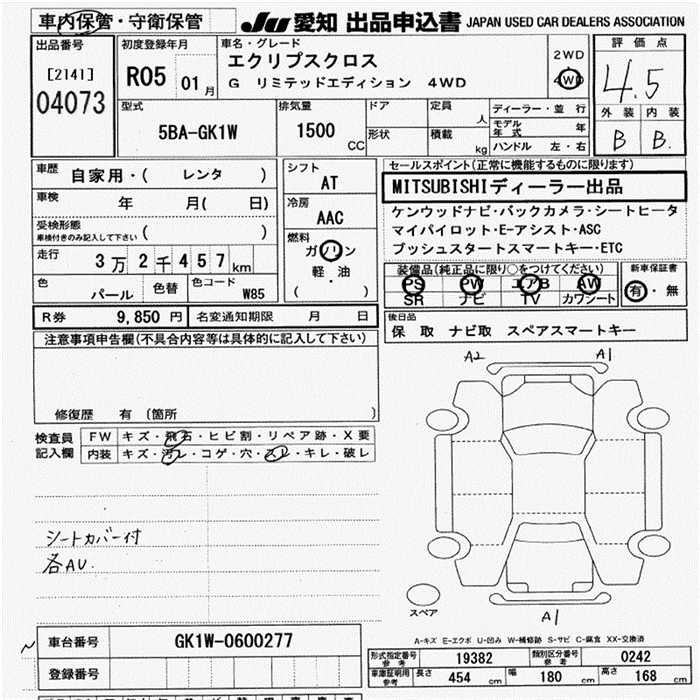 車内保管・守衛保管 JU 愛知 出品申込書 JAPAN USED CAR DEALERS ASSOCIATION
出品番号
[2141]
04073
初度登録年月
R05 01月
車名・グレード
エクリプスクロス
G リミテッドエディション 4WD
2WD
4WD
評価点
4.5
外装 内装
B B.
型式
5BA-GK1W
排気量
1500
CC
ドア
形状
定員
人
積載
kg
ディーラー・並行
モデル年式 年
ハンドル 左・右
車歴 自家用・( レンタ )
車検 年 月( 日)
受検形態
車検付きのみ記入して下さい ( )
走行 3万2千457km
色 パール 色替 色コード W85
シフト
AT
冷房
AAC
燃料
ガソリン
軽・油
( )
セールスポイント(正常に機能するものに限ります)
MITSUBISHIディーラー出品
ケンウッドナビ・バックカメラ・シートヒータ
マイパイロット・E-アシスト・ASC
プッシュスタートスマートキー・ETC
装備品(純正品に限り○をつけてください)
PS PW エアB AW
SR ナビ TV カワシート
新車保証書
有・無
R券 9,850円 名変通知期限 月 日
後日品
保 取 ナビ取 スペアスマートキー
注意事項申告欄(不具合内容等は具体的に記入して下さい)
修復歴 有 (箇所 )
検査員
記入欄
FW キズ・飛石・ヒビ割・リペア跡・X要
内装 キズ・汚レ・コゲ・穴・スレ・キレ・破レ
シートカバー付
各AU
A2 A1
スペア
A1
A-キズ E-エクボ U-凹み W-補修跡 S-サビ C-腐食 XX-交換済
車台番号 GK1W-0600277
登録番号
形式指定番号
参考
19382
類別区分番号
参考
0242
車庫証明用
参考
長さ 454 cm 幅 180 cm 高さ 168 cm